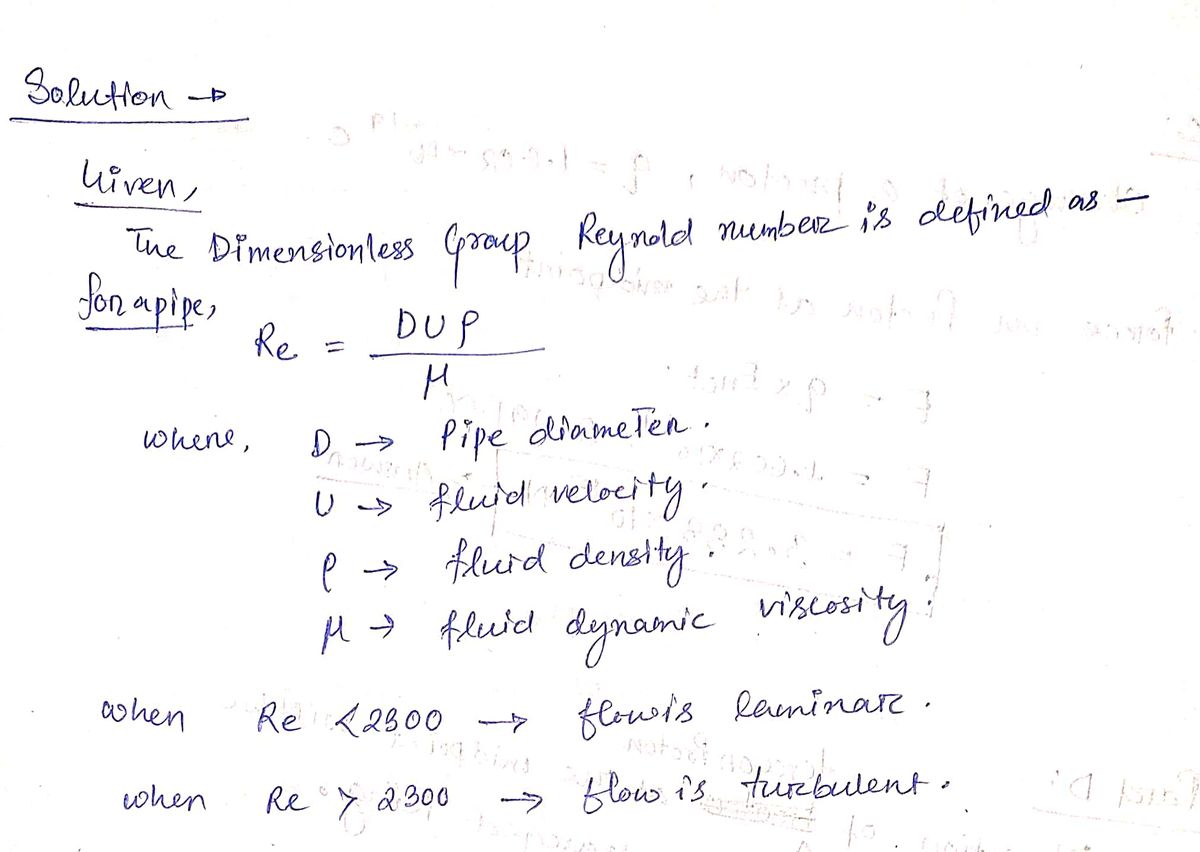 Solution →
Given,
The Dimensionless Group Reynold number is defined as —
for a pipe,
Re = DUρ / μ
where, D → Pipe diameter.
U → fluid velocity.
ρ → fluid density.
μ → fluid dynamic viscosity.
when Re < 2300 → flow is laminar.
when Re > 2300 → flow is turbulent.